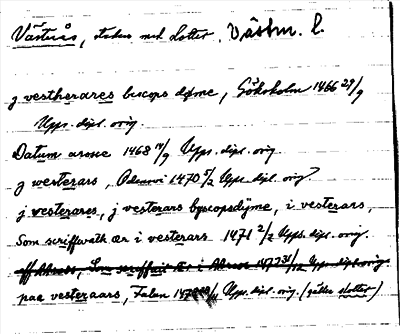 Västerås, staden med slottet, Västm. l.
j vestherares bucops döme, Göksholm 1466 29/9
Upps. dipl. orig.
Datum arosie 1468 14/9 Upps. dipl. orig.
j westerars, 1470 5/2 Upps. dipl. orig.
j vesterares, j vesterars byscopsdyme, i vesterars,
Som scriffwath ær i vesterars 1471 2/2 Upps. dipl. orig.
paa vesteraars, Falun Upps. dipl. orig. (gäller slottet)